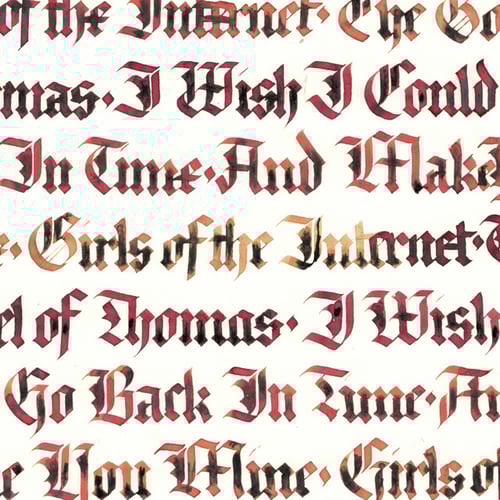 of the Internet · The Go
mas · I Wish I Could
In Time · And Make
· Girls of the Internet ·
el of Thomas · I Wish
Go Back In Time · An
e You Mine · Girls of